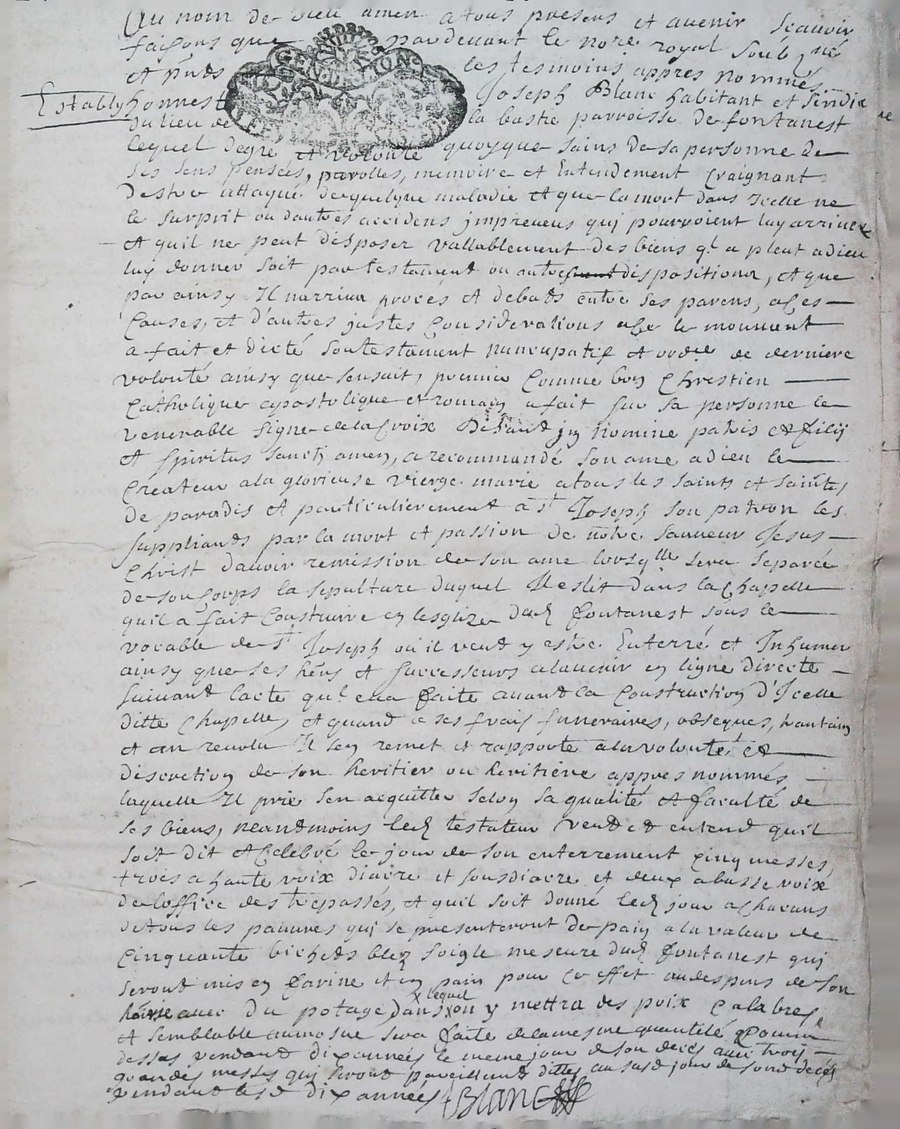 Au nom de dieu amen a tous presens et avenir scavoir
faisons que pardevant le nore royal soub né
et pnts les tesmoins appres nommés
Establÿ honnest Joseph Blanc habitant et sindic
GEN DE LION
du lieu de la bastie parroisse de fontanest
lequel degre et volonté quoyque sains de sa personne de
ses sens pensées, parolles, memoire et Entendement Craignant
destre attaqué de quelque maladie et que la mort dans Icelle ne
le surprit ou dautres accidens impreveus qui pourroient luy arriver
et quil ne peut disposer vallablement des biens ql a pleut a dieu
luy donner soit par testament ou autre disposition, et que
par ainsy Il narriva proces et debats entre ses parens, a ces
Causes, et d'autres justes Considerations a ce le mouvant
a fait et dicté son testament nuncupatif et ordre de derniere
volonté ainsy que sensuit, premier Comme bon Chrestien
Catholique apostolique et romain a fait sur sa personne le
venerable signe de la Croix Disant jn Nomine patris et filij
et spiritus sancti amen, a recommandé son ame a dieu le
Createur a la glorieuse vierge marie a tous les saints et saintes
de paradis et particulierement a st Joseph son patron les
suppliants par la mort et passion de nôtre sauveur Jesus
Christ davoir remission de son ame lorsqlle sera separée
de son corps la sepulture duquel Il eslit dans la Chapelle
quil a fait Construire en lesglize dud fontanest sous le
vocable de st Joseph ou il veut y estre Enterré et Inhumer
ainsy que ses hers et successeurs a lavenir en ligne directe
suivant lacte ql en a faite avant la Construction d'Icelle
ditte Chapelle, et quand a ses frais funeraires, obseques, quarantain
et an revolu Il sen remet et rapporte a la volonté et
discretion de son heritier ou heritiere appres nommés
laquelle Il prie sen acquitter selon sa qualité et faculté de
ses biens, neantmoins led testateur veut et entend quil
soit dit et Celebré le jour de son enterrement Cinq messes,
trois a haute voix diacre et sousdiacre et deux a basse voix
de loffice des trepassés, et quil soit donné led jour a Chacuns
de tous les pauvres qui se presenteront de pain a la valeur de
Cinquante bichets bled soigle mesure dud fontanest qui
seront mis en farine et en pain pour Cet effet au despens de son
hoirie avec du potage dans lequel on y mettra des poix
et semblable aumosne sera faite de la mesme quantité que
dessus pendant dix années le meme jour de son deces avec trois
grandes messes qui seront pareillement dittes au susd jour de son deces
pendant lesd dix années Blanc